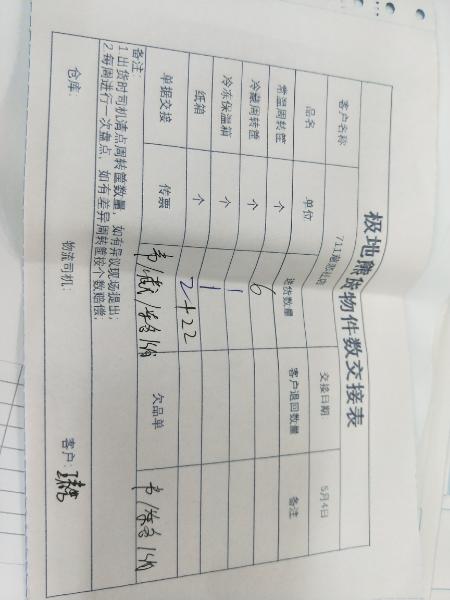 极地熊货物件数交接表
客户名称 711 交接日期 5月4日
品名 单位 送货数量 客户退回数量 备注
常温周转筐 个 6
冷藏周转筐 个
冷冻保温箱 个 1
纸箱 个 2+22
单据交接 传票 欠品单
备注:
1 出货时司机清点周转筐数量,如有异议现场提出;
2 每周进行一次盘点,如有差异周转筐按个数赔偿;
仓库: 物流司机: 客户: